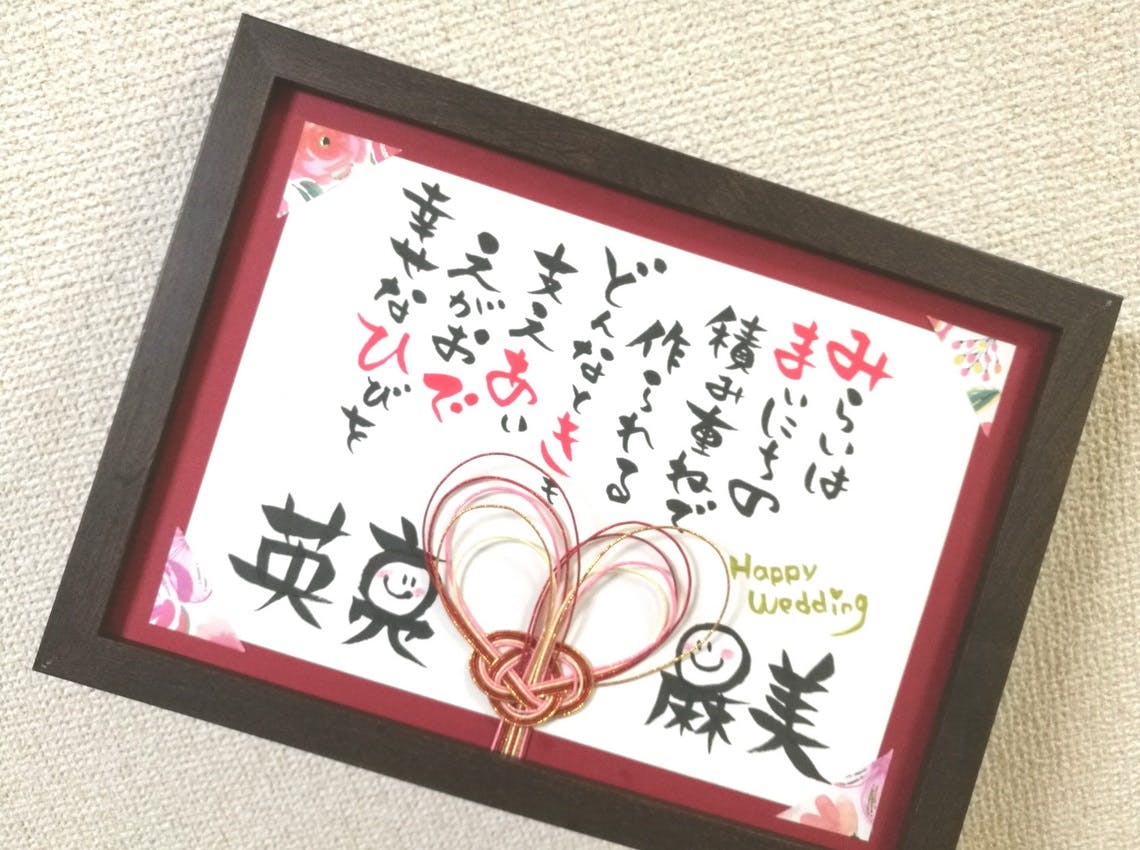 みらいは
まいにちの
積み重ねで
作られる
どんなときも
支えあい
えがおで
幸せなひびを
Happy
Wedding
英
麻美